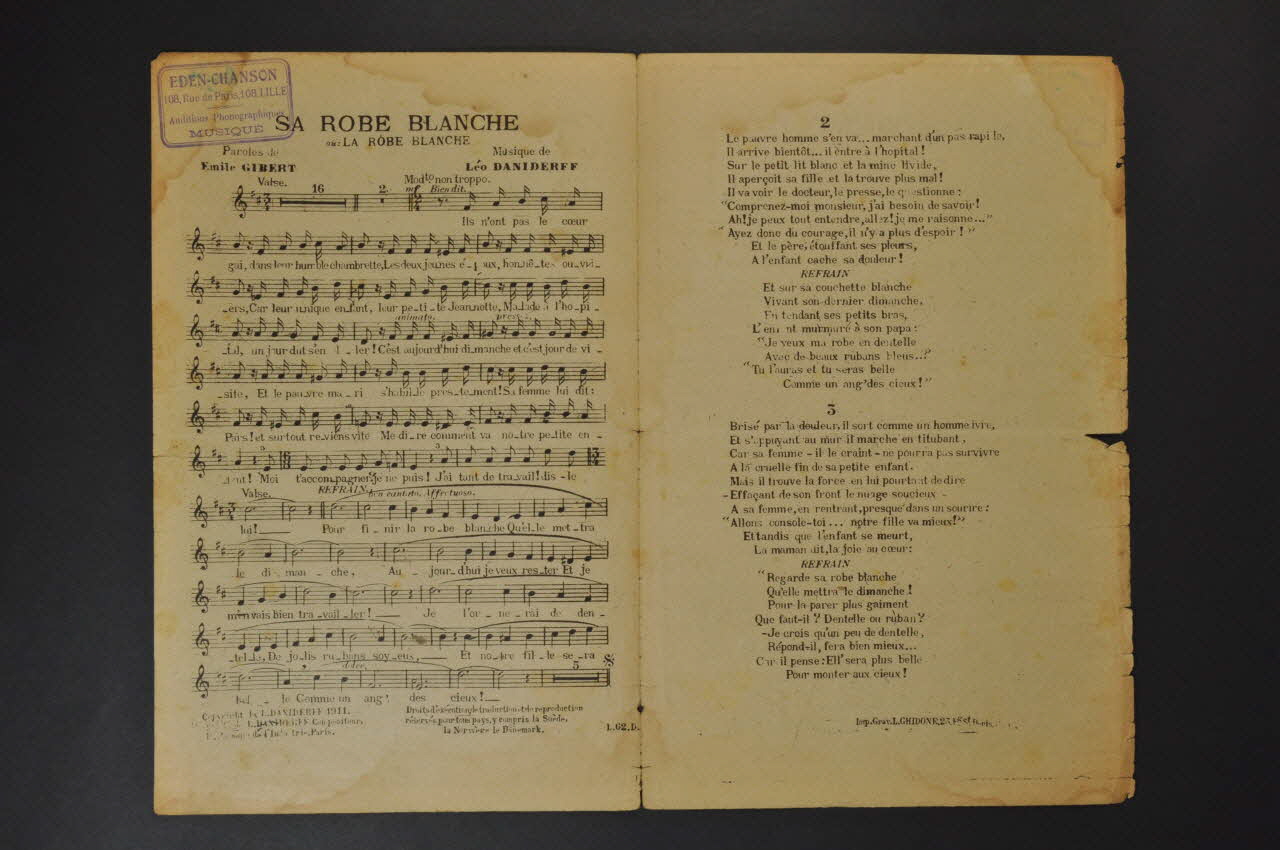 EDEN-CHANSON
108, Rue de Paris, 108, LILLE
Auditions Phonographiques
MUSIQUE
SA ROBE BLANCHE
ou: LA ROBE BLANCHE
Paroles de
Emile GIBERT
Musique de
Léo DANIDERFF
Valse.
Modto non troppo.
16
2
mf Bien dit.
Ils n'ont pas le cœur
gai, dans leur humble chambrette, Les deux jeunes é_poux, hon_nê_tes ou_vri_
_ers, Car leur unique en_fant, leur pe_ti_te Jeannette, Malade à l'ho_pi_
animato.
pressez.
_tal, un jour dut s'en al_ler! C'est aujourd'hui dimanche et c'est jour de vi_
_site, Et le pau_vre ma_ri s'habil_le pres_te_ment! Sa femme lui dit:
Pars! et surtout re_viens vite Me di_re comment va no_tre pe_tite en_
_fant! Moi t'accompagner je ne puis! J'ai tant de tra_vail! dis_le
Valse.
REFRAIN
ben cantato. Affectuoso.
lui! Pour fi_nir la ro_be blanche Qu'el_le met_tra
le di_man_che, Au_jour_d'hui je veux res_ter Et je
m'en vais bien tra_vail_ler! Je l'or_ne_rai de den_
_tel_le, De jo_lis ru_bans soy_eux, Et no_tre fil_le se_ra
dolce.
5
bel_le Comme un ang' des cieux!
Copyright by L. DANIDERFF 1911.
L. DANIDERFF Compositeur,
Paris.
Droits d'exécution, de traduction, et de reproduction
réservés pour tous pays, y compris la Suède,
la Norwère le Danemark.
L.62.D.
2
Le pauvre homme s'en va... marchant d'un pas rapide,
Il arrive bientôt... il entre à l'hopital!
Sur le petit lit blanc et la mine livide,
Il aperçoit sa fille et la trouve plus mal!
Il va voir le docteur, le presse, le questionne:
"Comprenez-moi monsieur, j'ai besoin de savoir!
Ah! je peux tout entendre, allez! je me raisonne..."
"Ayez donc du courage, il n'y a plus d'espoir!"
Et le père, étouffant ses pleurs,
A l'enfant cache sa douleur!
REFRAIN
Et sur sa couchette blanche
Vivant son dernier dimanche,
En tendant ses petits bras,
L'enfant murmure à son papa:
"Je veux ma robe en dentelle
Avec de beaux rubans bleus..?
"Tu l'auras et tu seras belle
Comme un ang' des cieux!"
3
Brisé par la douleur, il sort comme un homme ivre,
Et s'appuyant au mur il marche en titubant,
Car sa femme - il le craint - ne pourra pas survivre
A la cruelle fin de sa petite enfant.
Mais il trouve la force en lui pourtant de dire
- Effaçant de son front le nuage soucieux -
A sa femme, en rentrant, presque dans un sourire:
"Allons console-toi... notre fille va mieux!"
Et tandis que l'enfant se meurt,
La maman dit, la joie au cœur:
REFRAIN
"Regarde sa robe blanche
Qu'elle mettra le dimanche!
Pour la parer plus gaiment
Que faut-il? Dentelle ou ruban?
-Je crois qu'un peu de dentelle,
Répond-il, fera bien mieux...
Car il pense: Ell' sera plus belle
Pour monter aux cieux!
Imp. Grav. L. GHIDONE,